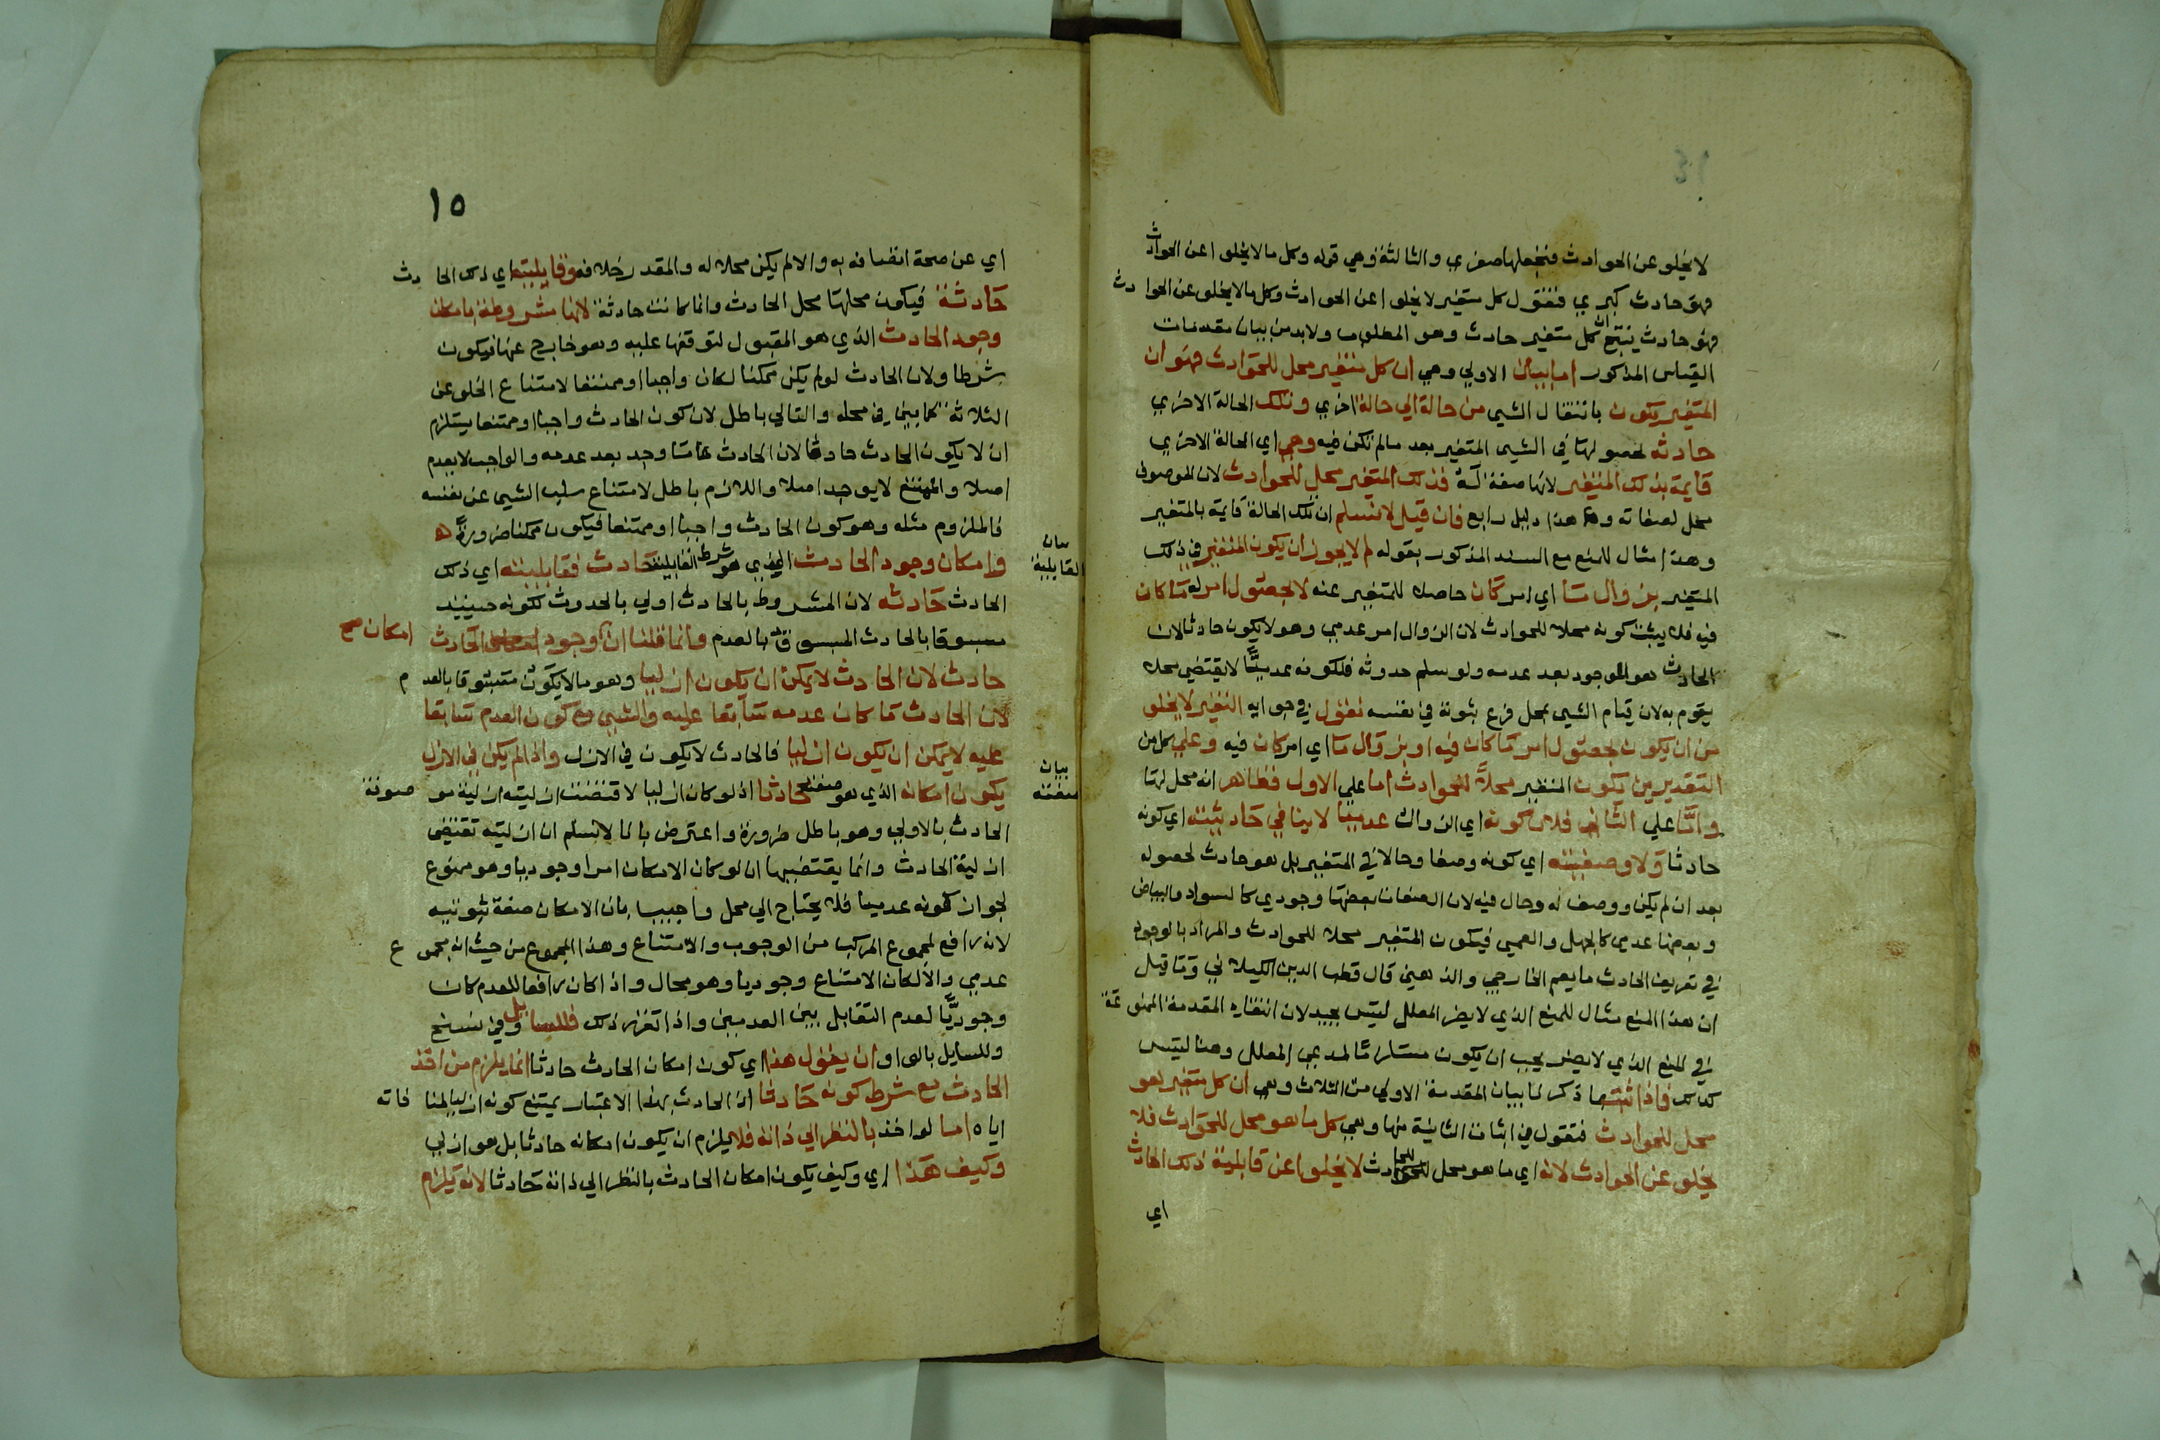 لا يخلو عن الحوادث فنجعلها صغري والثالثة وهي قوله وكل ما لا يخلوا عن الحوادث
فهو حادث كبري فنقول كل متغير لا يخلوا عن الحوادث وكل ما لا يخلو عن الحوادث
فهو حادث ينتج ان كل متغير حادث وهو المطلوب ولابد من بيان مقدمات
القياس المذكور اما بيان الاولي وهي ان كل متغير محل للحوادث فهو ان
المتغير يكون بانتقال الشيي من حالة الي حالة اخري وتلك الحالة الاخري
حادثه لحصولها في الشيي المتغير بعد ما لم تكن فيه وهي اي الحالة الاخري
قايمة بذلك المتغير لانها صفة له فذلك المتغير محل للحوادث لان الموصوف
محل لصفاته وهذا دليل رابع فان قيل لا نسلم ان تلك الحالة قايمة بالمتغير
وهذا مثال للمنع مع السند المذكور بقوله لم لا يجوز ان يكون المتغير في ذلك
المتغير بزوال ما اي امر كان حاصلا للمتغير عنه لا بحصول امر له ما كان
فيه فلا يثبت كونه محلا للحوادث لان الزوال امر عدمي وهو لا يكون حادثا لان
الحادث هو الموجود بعد عدمه ولو سلم حدوثه فلكونه عدميًّا لا يقتضي محلا
يقوم به لان قيام الشيي بمحل فرع ثبوته في نفسه نقول في جوابه التغير لا يخلو
من ان يكون بحصول امر ما كان فيه او بزوال ما اي امر كان فيه وعلي كل من
التقديرين يكون المتغير محلًّا للحوادث اما علي الاول فظاهر انه محل لها
وامَّا علي الثاني فلان كونه اي الزوال عدميا لا ينافي حادثيته اي كونه
حادثا ولا وصفيته اي كونه وصفا وحالا في المتغير بل هو حادث لحصوله
بعد ان لم يكن ووصف له وحال فيه لان الصفات بعضها وجودي كالسواد والبياض
وبعضها عدمي كالجهل والعمي فيكون المتغير محلا للحوادث والمراد بالوجود
في تعريف الحادث ما يعم الخارجي والذهني قال قطب الدين الكيلاني وما قيل
ان هذا المنع مثال للمنع الذي لا يضر المعلل ليس بجيد لان انتفاء المقدمة الممنوعة
في المنع الذي لا يضر يجب ان يكون مستلزما لمدعي المعلل وهنا ليس
كذلك فاذا ثبت ما ذكر لنا بيان المقدمة الاولي من الثلاث وهي ان كل متغير هو
محل للحوادث فنقول في اثبات الثانية منها وهي كل ما هو محل للحوادث فلا
يخلو عن الحوادث لانه اي ما هو محل للحوادث لا يخلوا عن قابلية ذلك الحادث
اي
١٥
اي عن صحة اتصافه به والا لم يكن محلا له والمقدر خلافه وقابليته اي ذلك الحادث
حادثة فيكون محلها محل الحادث وانما كانت حادثة لانها مشروطة بامكان
وجود الحادث الذي هو المقبول لتوقفها عليه وهو خارج عنها فيكون
شرطا ولان الحادث لو لم يكن ممكنا لكان واجبا او ممتنعا لامتناع الخلو عن
الثلاثة كما بين في محله والتالي باطل لان كون الحادث واجبا او ممتنعا يستلزم
ان لا يكون الحادث حادثا لان الحادث ما وجد بعد عدمه والواجب لا يعدم
اصلا والممتنع لا يوجد اصلا واللازم باطل لامتناع سلب الشيي عن نفسه
فالملزوم مثله وهو كون الحادث واجبا او ممتنعا فيكون ممكنا ضرورةً
وامكان وجود الحادث الذي هو شرط القابلية حادث فقابليته اي ذلك
بيان
القابلية
الحادث حادثه لان المشروط بالحادث اولي بالحدوث لكونه حينيذ
مسبوقا بالحادث المسبوق بالعدم وانما قلنا ان وجود الحادث
امكان صح
حادث لان الحادث لا يمكن ان يكون ازليا وهو ما لا يكون مسبوقا بالعدم
لان الحادث ما كان عدمه سابقا عليه والشيي مع كون العدم سابقا
عليه لا يمكن ان يكون ازليا فالحادث لا يكون في الازل واذا لم يكن في الازل
يكون امكانه الذي هو صفته حادثا اذ لو كان ازليا لاقتضت ازليته ازلية موصوفة
بيان
صفته
الحادث بالاولي وهو باطل ضرورة واعترض بانا لا نسلم ان ازليته تقتضي
ازلية الحادث وانما يقتضيها ان لو كان الامكان امرا وجوديا وهو ممنوع
لجواز كونه عدميا فلا يحتاج الي محل واجيب بان الامكان صفة ثبوتيه
لانه رافع لمجموع المركب من الوجوب والامتناع وهذا المجموع من حيث انه مجموع
عدمي والا لكان الامتناع وجوديا وهو محال واذا كان رافعا للعدم كان
وجوديًّا لعدم التقابل بين العدميين واذا تقرر ذلك فللسايل وفي نسخ
وللسايل بالواو ان يقول هذا اي كون امكان الحادث حادثا انما يلزم من اخذ
الحادث مع شرط كونه حادثا اذ الحادث بهذا الاعتبار يمتنع كونه ازليا لمنافاته
اياه اما لو اخذ بالنظر الي ذاته فلا يلزم ان يكون امكانه حادثا بل هو ازلي
وكيف هذا اي وكيف يكون امكان الحادث بالنظر الي ذاته حادثا لانه يلزم